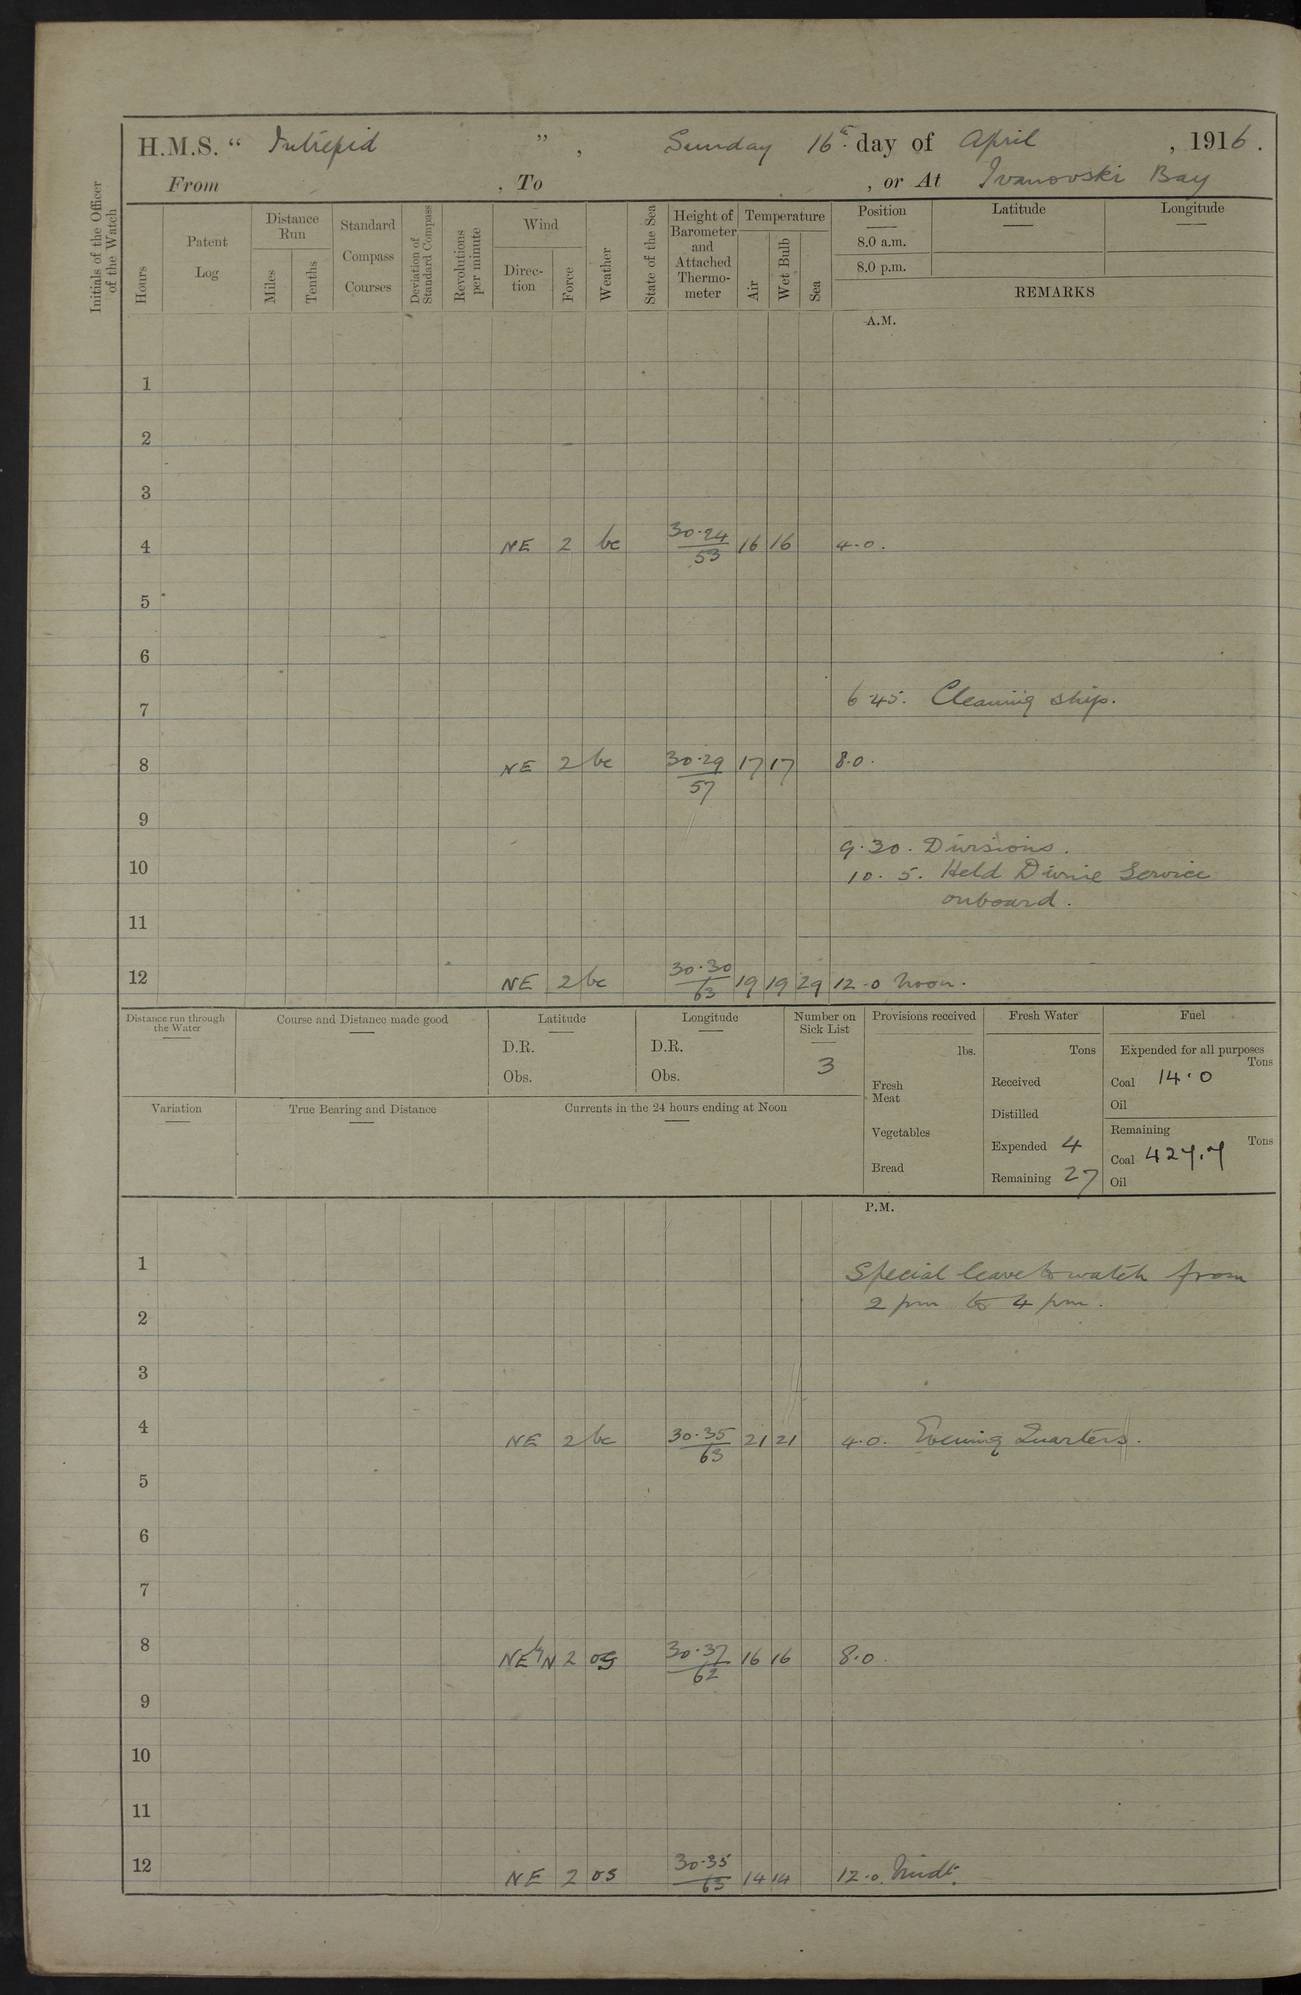 H.M.S. “ Intrepid ” , Sunday 16th day of April , 1916 .
From , To , or At Ivanovski Bay
Initials of the Officer of the Watch
Hours
Patent Log
Distance Run
Miles
Tenths
Standard Compass Courses
Deviation of Standard Compass
Revolutions per minute
Wind
Direc-tion
Force
Weather
State of the Sea
Height of Barometer and Attached Thermo-meter
Temperature
Air
Wet Bulb
Sea
Position
8.0 a.m.
8.0 p.m.
Latitude
Longitude
REMARKS
A.M.
1
2
3
4 NE 2 bc 30·24/53 16 16 4·0.
5
6
7 6·45. Cleaning ship.
8 NE 2 bc 30·29/57 17 17 8·0.
9
9·30. Divisions.
10 10·5. Held Divine Service
onboard.
11
12 NE 2 bc 30·30/63 19 19 29 12·0 Noon.
Distance run through the Water
Course and Distance made good
Latitude
D.R.
Obs.
Longitude
D.R.
Obs.
Number on Sick List
3
Provisions received
lbs.
Fresh Meat
Vegetables
Bread
Fresh Water
Tons
Received
Distilled
Expended 4
Remaining 27
Fuel
Expended for all purposes
Tons
Coal 14·0
Oil
Remaining
Tons
Coal 427.7
Oil
Variation
True Bearing and Distance
Currents in the 24 hours ending at Noon
P.M.
1 Special leave to watch from
2 pm to 4 pm.
2
3
4 NE 2 bc 30·35/63 21 21 4·0. Evening Quarters.
5
6
7
8 NE by N 2 os 30·37/62 16 16 8·0.
9
10
11
12 NE 2 os 30·35/63 14 14 12·0. Midt.